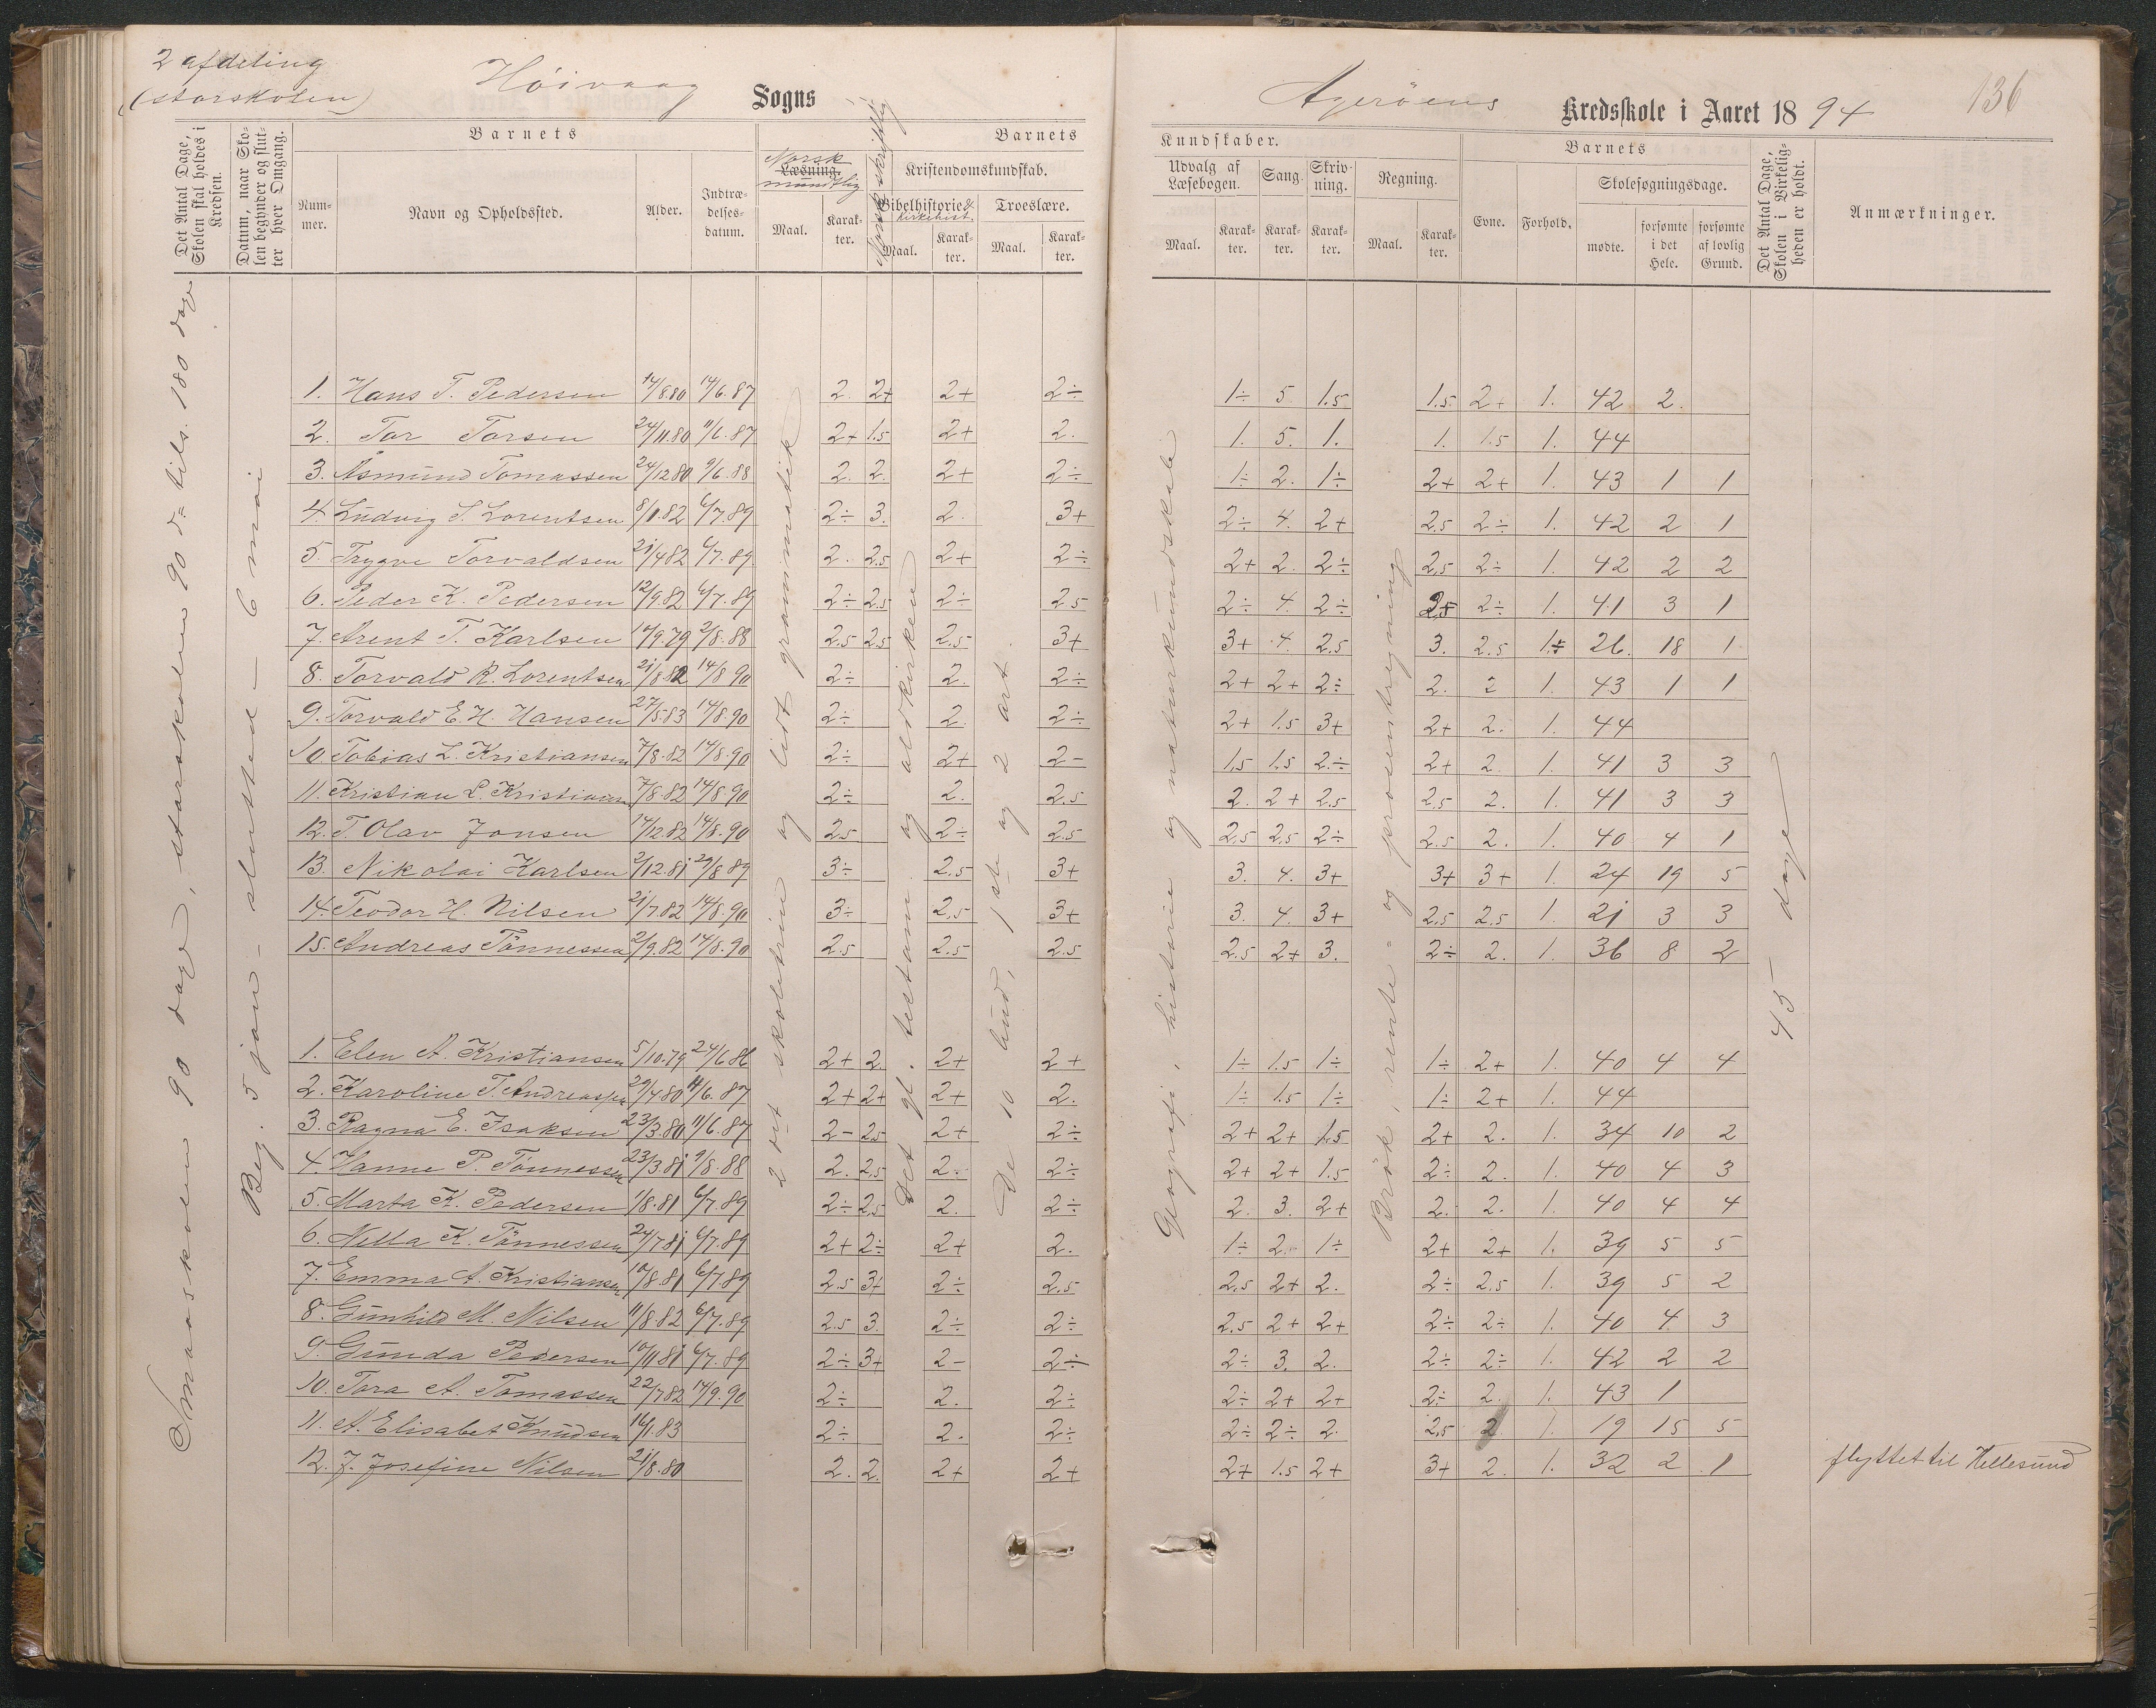 2 afdeling
(storskolen)
Höivaag Sogns
Det Antal Dage, Skolen skal holdes i Kredsen.
Datum, naar Skolen begynder og slutter hver Omgang.
Barnets
Nummer.
Navn og Opholdssted.
Alder.
Indtrædelsesdatum.
Barnets
Læsning.
Norsk mundtlig
Maal.
Karakter.
Norsk skriftlig
Kristendomskundskab.
Bibelhistorie & Kirkehist.
Maal.
Karakter.
Troeslære.
Maal.
Karakter.
Smaaskolen 90 dage, storskolen 90 d = tils. 180 dage
Beg. 5 jan - slutted - 6 mai
2 det skoletrin og lidt grammatik
Det gl. testam. og oldkirken
De 10 bud, 1ste og 2 art.
1. Hans T. Pedersen 14/8.80 14/6.87 2. 2+ 2+ 2÷
2. Tor Torsen 24/11.80 11/6.87 2+ 1.5 2+ 2.
3. Åsmund Tomassen 24/12 80 9/6.88 2. 2. 2+ 2÷
4. Ludvig S. Lorentsen 8/1.82 6/7.89 2÷ 3. 2. 3+
5. Trygve Torvaldsen 21/4 82 6/7.89 2. 2.5 2+ 2÷
6. Peder K. Pedersen 12/9.82 6/7.89 2÷ 2.5 2÷ 2.5
7. Arent T. Karlsen 10/9.79 2/8.88 2.5 2.5 2.5 3+
8. Torvald R. Lorentsen 21/8 82 14/8 90 2÷ 2. 2÷
9. Torvald E. H. Hansen 27/5.83 14/8.90 2÷ 2. 2÷
10. Tobias L. Kristiansen 7/8.82 14/8.90 2÷ 2+ 2-
11. Kristian L. Kristiansen 7/8.82 14/8.90 2÷ 2. 2.5
12. T. Olav Jonsen 14/12.82 14/8.90 2.5 2÷ 2.5
13. Nikolai Karlsen 2/12.81 29/8 89 3÷ 2.5 3+
14. Teodor H. Nilsen 21/7.82 14/8.90 3÷ 2.5 3+
15. Andreas Tönnessen 2/9.82 14/8.90 2.5 2.5 2.5
1. Elen A. Kristiansen 5/10.79 24/6 86 2+ 2. 2+ 2+
2. Karoline T. Andreassen 29/4 80 11/6.87 2+ 2+ 2+ 2.
3. Ragna E. Isaksen 23/3.80 11/6.87 2- 2.5 2+ 2÷
4. Hanne P. Tönnessen 23/3.81 9/8.88 2. 2.5 2. 2÷
5. Marta K. Pedersen 1/8.81 6/7.89 2÷ 2.5 2. 2÷
6. Nella K. Tönnessen 24/7 81 6/7.89 2+ 2÷ 2+ 2.
7. Emma A. Kristiansen 10/8.81 6/7.89 2.5 3+ 2÷ 2.5
8. Gunhild M. Nilsen 11/8.82 6/7.89 2.5 3. 2÷ 2÷
9. Gunda Pedersen 10/11 81 6/7.89 2÷ 3+ 2- 2÷
10. Tora A. Tomassen 22/7 82 14/9.90 2÷ 2. 2÷
11. A. Elisabet Knudsen 16/1.83 2÷ 2. 2÷
12. J. Josefine Nilsen 21/8.80 2. 2. 2+ 2+
Agerøens Kredsskole i Aaret 1894
136
Kundskaber.
Udvalg af Læsebogen.
Maal.
Karakter.
Sang.
Karakter.
Skrivning.
Karakter.
Regning.
Maal.
Karakter.
Barnets
Evne.
Forhold.
Skolesøgningsdage.
mødte.
forsømte i det Hele.
forsømte af lovlig Grund.
Det Antal Dage, Skolen i Virkeligheden er holdt.
Anmærkninger.
Geografi, historie og naturkundskab
Brök, rente- og prosentregning
45 dage
1÷ 5 1.5 1.5 2+ 1. 42 2.
1. 5. 1. 1. 1.5 1. 44
1÷ 2. 1÷ 2+ 2+ 1. 43 1 1
2÷ 4. 2+ 2.5 2÷ 1. 42 2 1
2+ 2. 2÷ 2.5 2÷ 1. 42 2 2
2÷ 4. 2÷ 2.5 2÷ 1. 41 3 1
3+ 4. 2.5 3. 2.5 1.÷ 26. 18 1
2+ 2+ 2÷ 2. 2 1. 43 1 1
2+ 1.5 3+ 2+ 2. 1. 44
1.5 1.5 2.÷ 2+ 2. 1. 41 3 3
2. 2+ 2.5 2.5 2. 1. 41 3 3
2.5 2.5 2÷ 2.5 2. 1. 40 4 1
3. 4. 3+ 3+ 3+ 1. 24 19 5
3. 4. 3+ 2.5 2.5 1. 21 3 3
2.5 2+ 3. 2÷ 2. 1. 36 8 2
1÷ 1.5 1÷ 1÷ 2+ 1. 40 4 4
1÷ 1.5 1÷ 1÷ 2+ 1. 44
2+ 2+ 1.5 2+ 2. 1. 34 10 2
2+ 2+ 1.5 2÷ 2. 1. 40 4 3
2. 3. 2+ 2. 2. 1. 40 4 4
1÷ 2. 1÷ 2+ 2+ 1. 39 5 5
2.5 2+ 2. 2÷ 2.5 1. 39 5 2
2.5 2+ 2+ 2÷ 2÷ 1. 40 4 3
2÷ 3. 2. 2÷ 2÷ 1. 42 2 2
2÷ 2+ 2+ 2÷ 2. 1. 43 1
2÷ 2÷ 2. 2.5 2 1. 19 15 5
2+ 1.5 2+ 3+ 2. 1. 32 2 1 flyttet til Hellesund